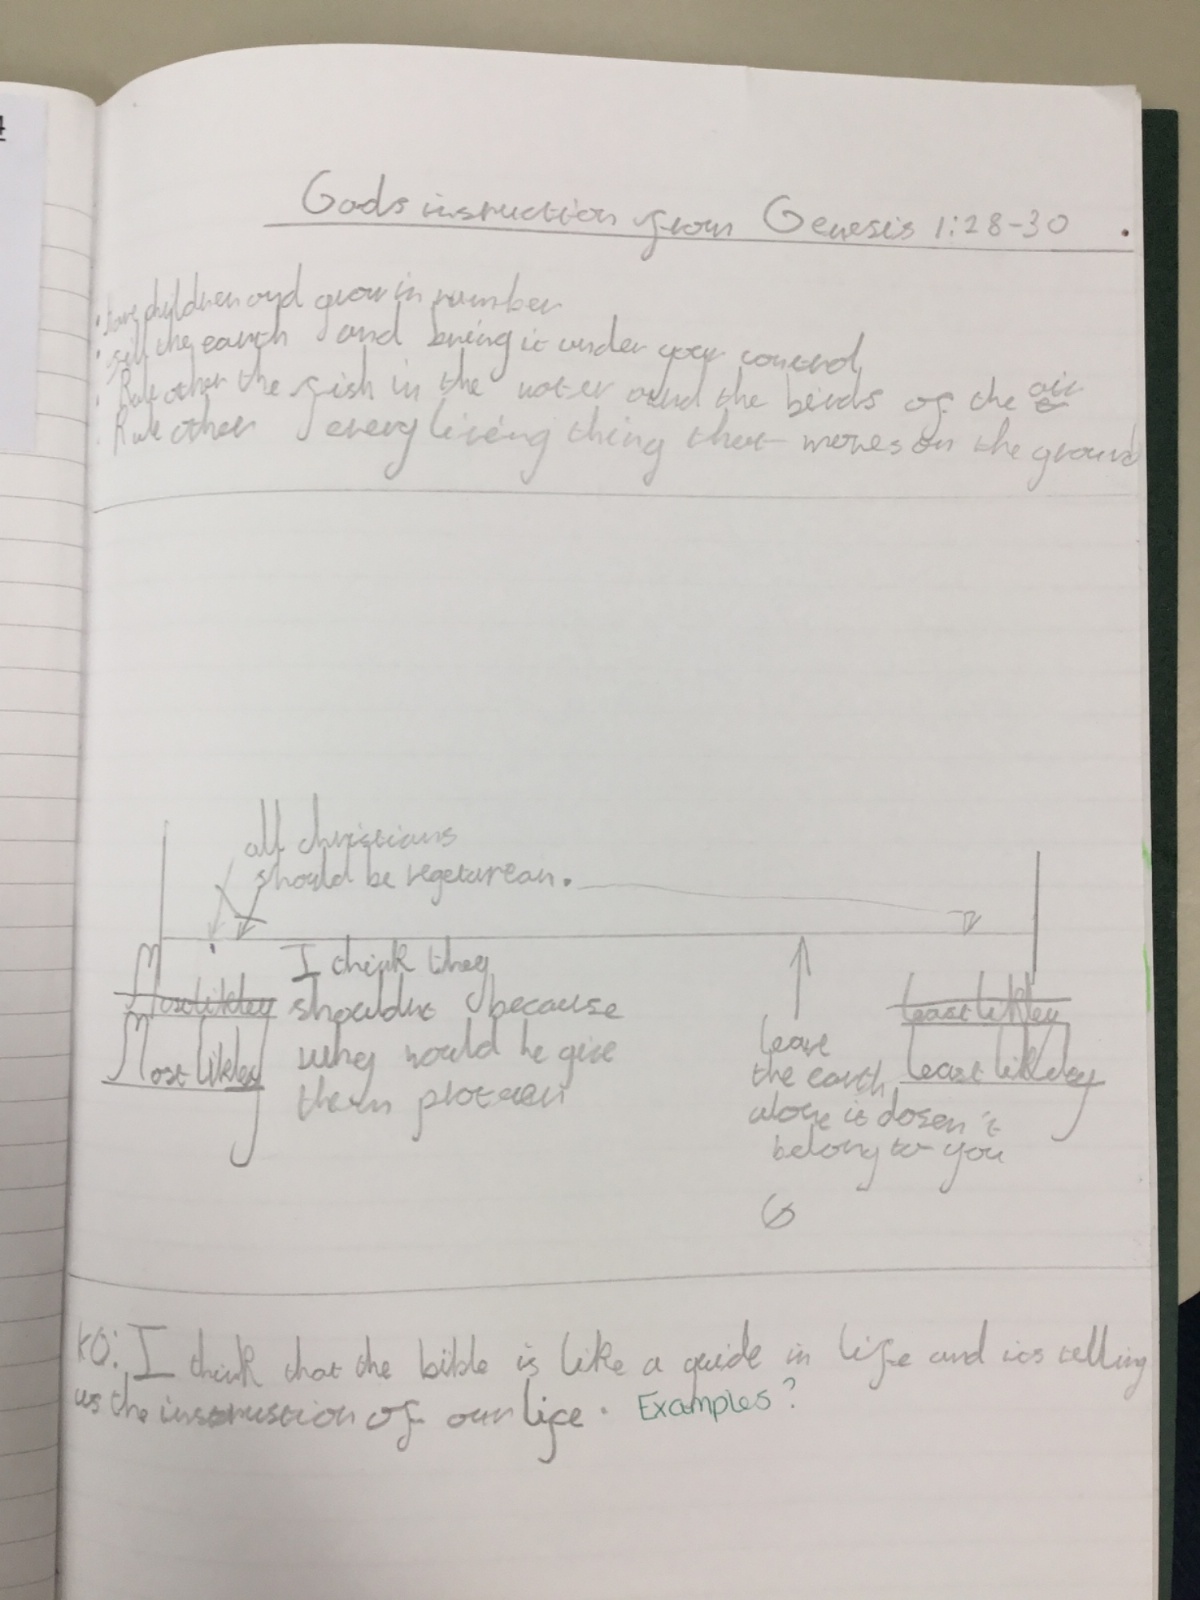 Gods instruction from Genesis 1:28-30 .
• have children and grow in number
• fill the earth and bring it under your control
• Rule other the fish in the water and the birds of the air
• Rule other every living thing that moves on the ground
all christians
should be vegeturean.
I think they
shouldnt because
why would he give
them
Most likley
Most likley
leave
the earth
alone it dosen't
belong to you
least likley
least likley
KO: I think that the bible is like a guide in life and its telling
us the insrustion of our life. Examples?